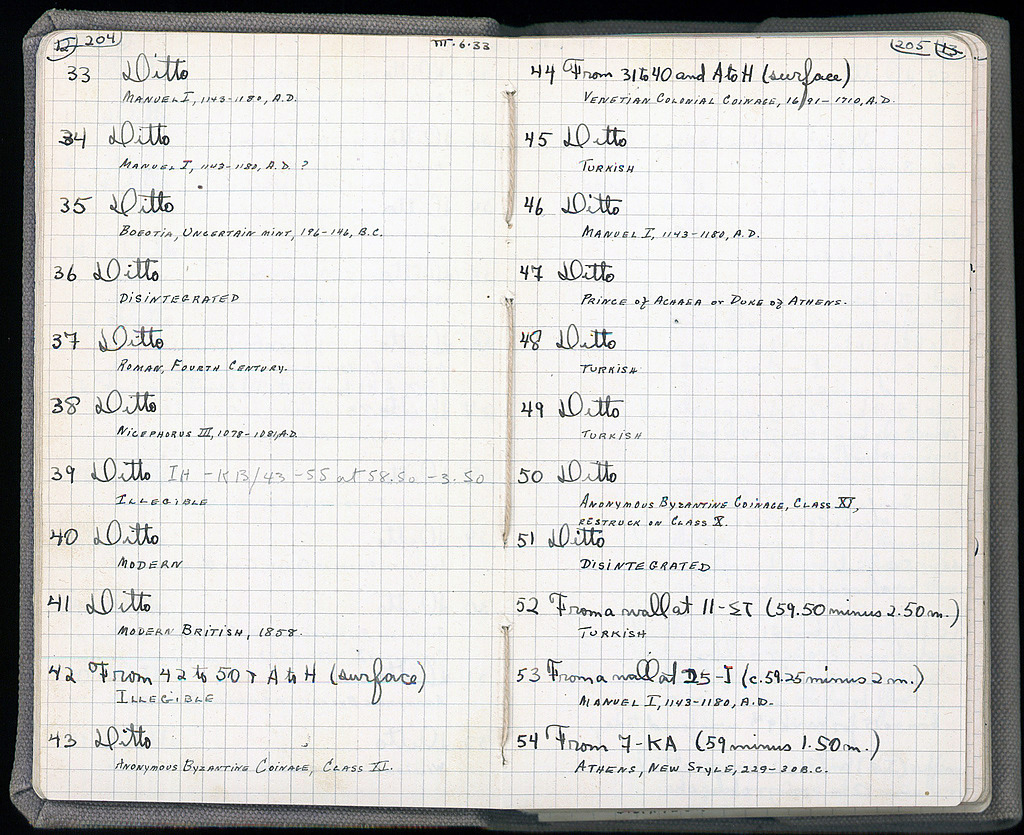 12 204
III.6.33
33 Ditto
MANUEL I, 1143-1180, A.D.
34 Ditto
MANUEL I, 1143-1180, A.D. ?
35 Ditto
BOEOTIA, UNCERTAIN MINT, 196-146, B.C.
36 Ditto
DISINTEGRATED
37 Ditto
ROMAN, FOURTH CENTURY.
38 Ditto
NICEPHORUS III, 1078-1081, A.D.
39 Ditto IH -KB/43-55 at 58.50 -3.50
ILLEGIBLE
40 Ditto
MODERN
41 Ditto
MODERN BRITISH, 1858.
42 From 42 to 50 A to H (surface)
ILLEGIBLE
43 Ditto
ANONYMOUS BYZANTINE COINAGE, CLASS
205 13
44 From 31 to 40 and A to H (surface)
VENETIAN COLONIAL COINAGE, 1691-1710, A.D.
45 Ditto
TURKISH
46 Ditto
MANUEL I, 1143-1180, A.D.
47 Ditto
PRINCE of ACHAEA or DUKE of ATHENS.
48 Ditto
TURKISH
49 Ditto
TURKISH
50 Ditto
ANONYMOUS BYZANTINE COINAGE, CLASS XI,
RESTRUCK ON CLASS X.
51 Ditto
DISINTEGRATED
52 From a wall at 11-ΣΤ (59.50 minus 2.50 m.)
TURKISH
53 From a wall at 25-I (c. 59.25 minus 2 m.)
MANUEL I, 1143-1180, A.D.
54 From 7-KA (59 minus 1.50 m.)
ATHENS, NEW STYLE, 229-30 B.C.